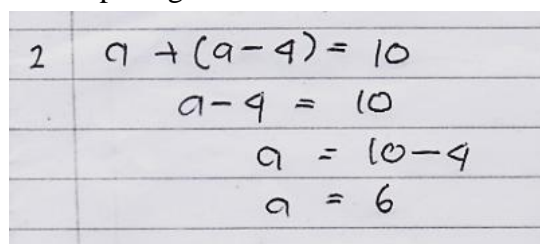 2 a + (a - 4) = 10
a - 4 = 10
a = 10 - 4
a = 6